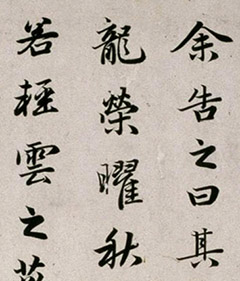 余告之曰其
龍榮曜秋
若輕雲之